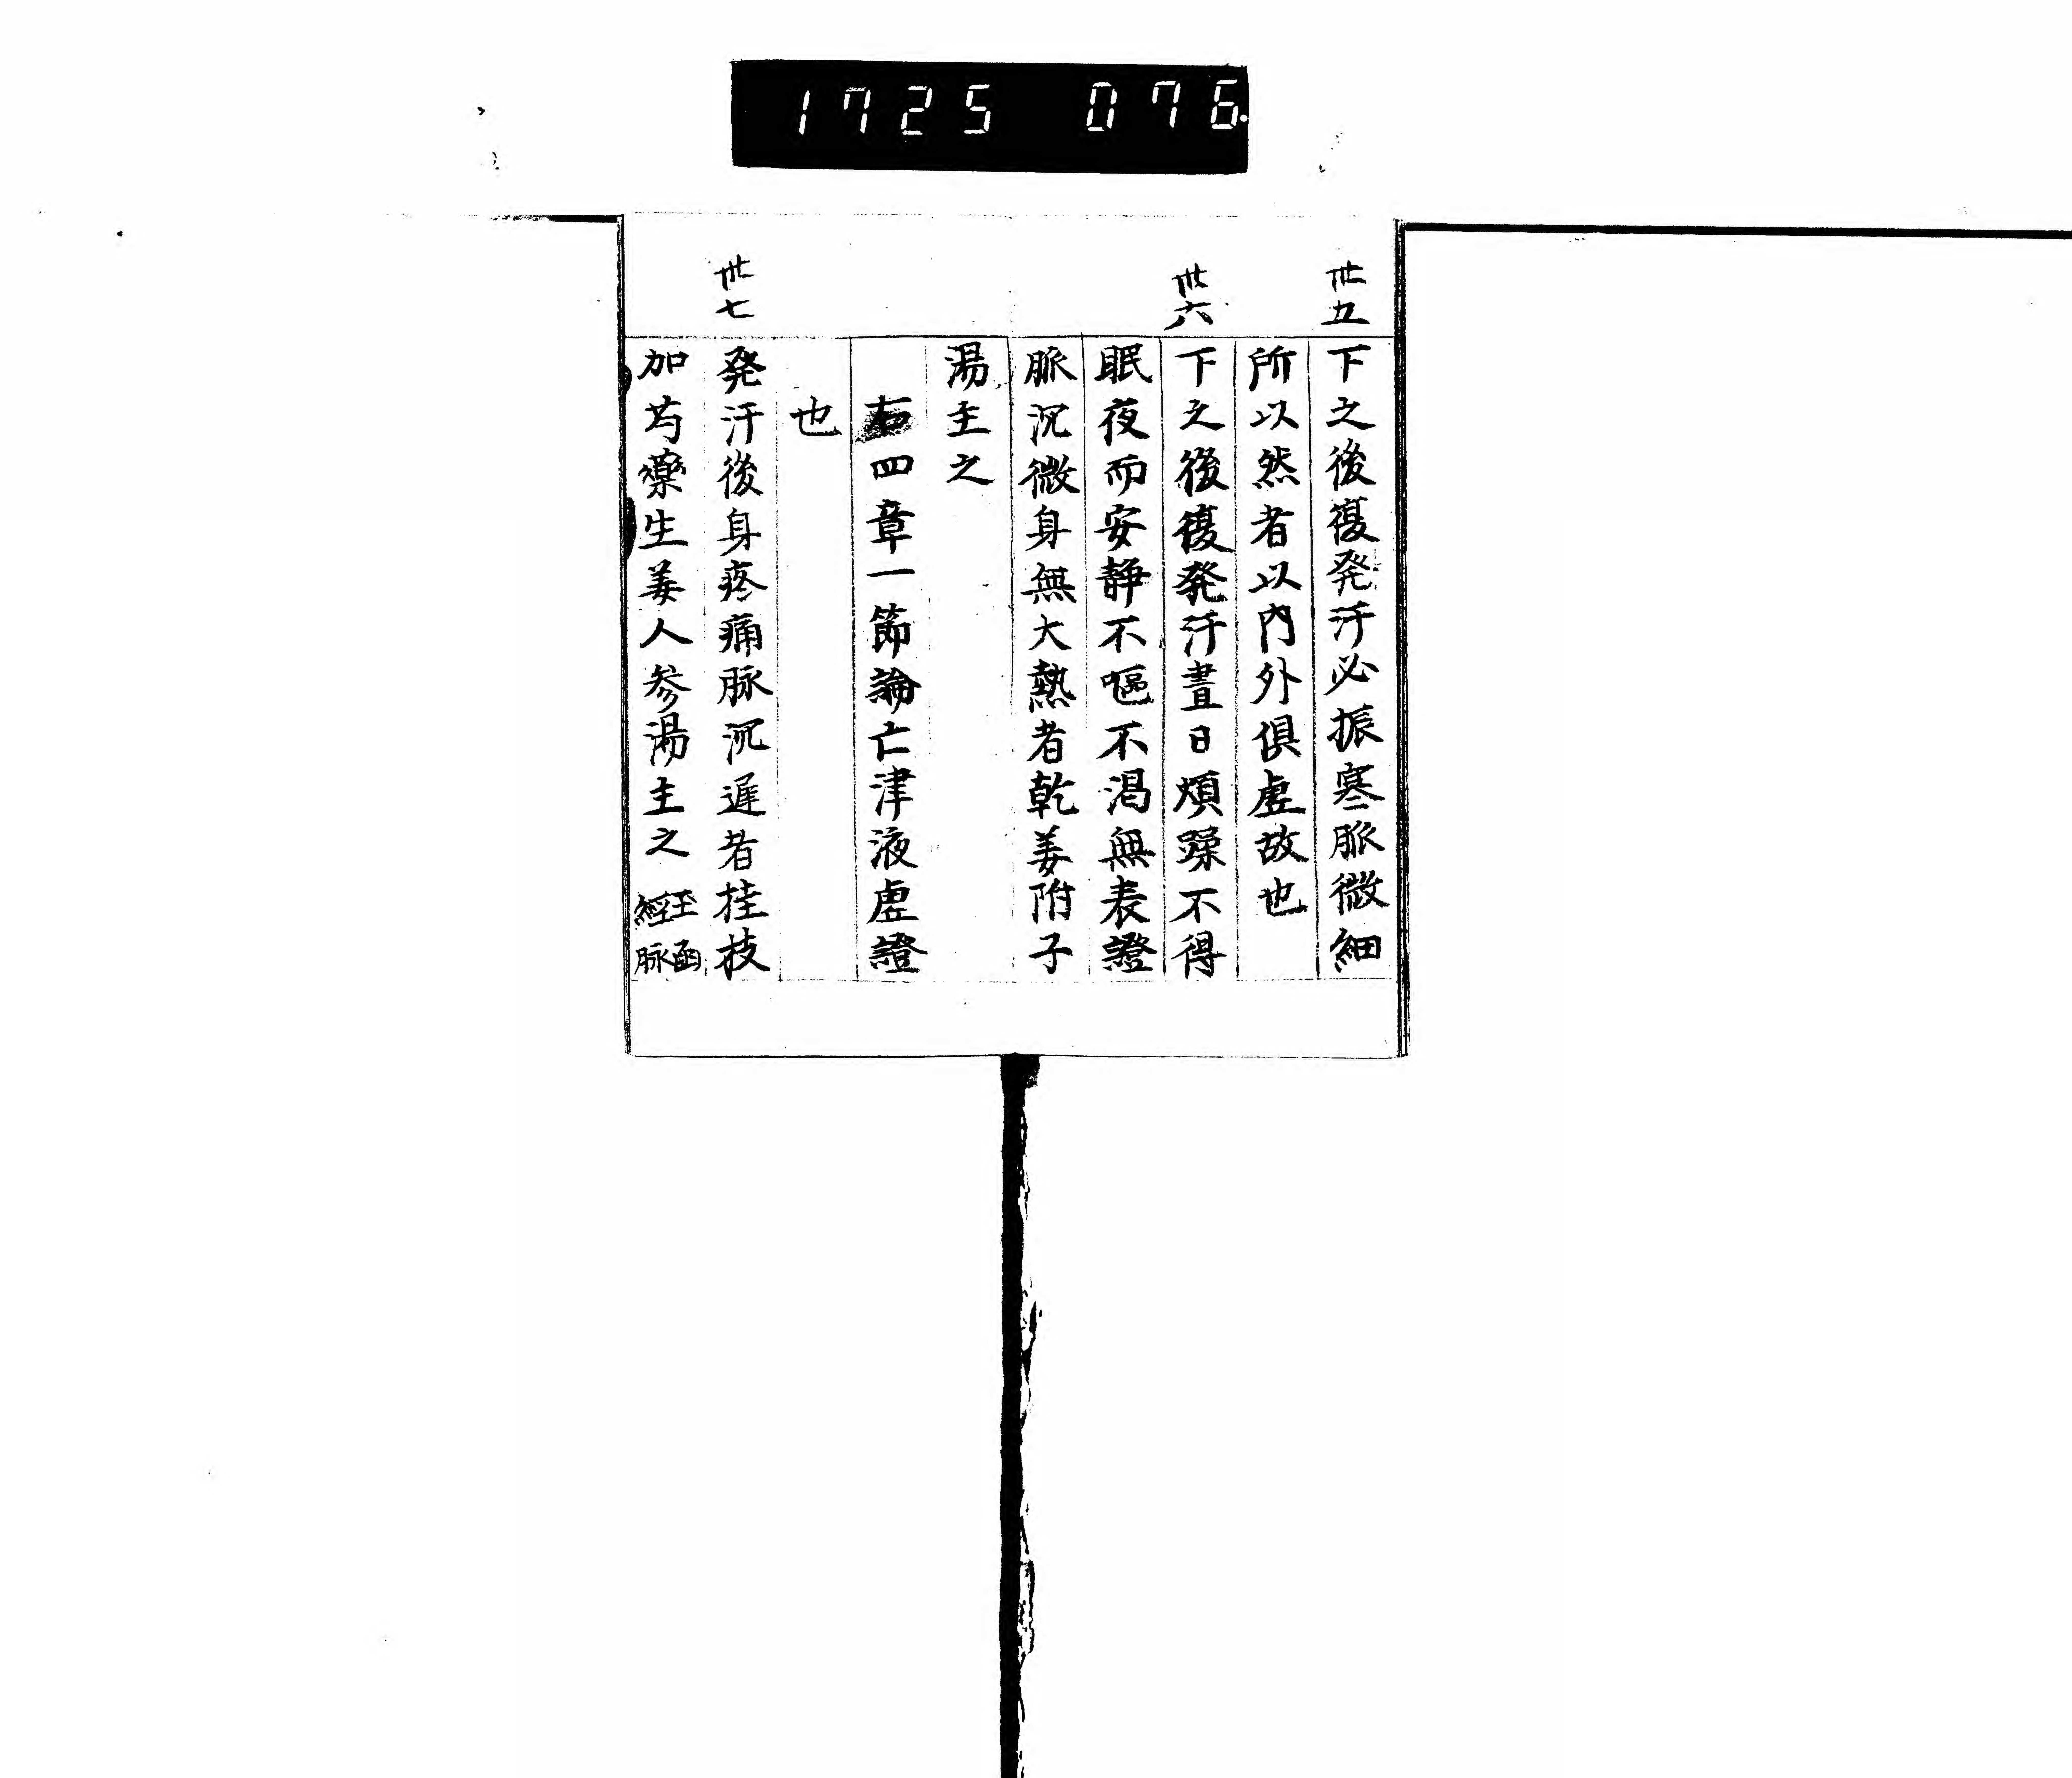 1725 076
卅五
下之後復発汗必振寒脈微細
所以然者以內外俱虛故也
卅六
下之後復発汗晝日煩躁不得
眠夜而安静不嘔不渇無表證
脈沉微身無大熱者乾姜附子
湯主之
右四章一節論亡津液虛證
也
卅七
発汗後身疼痛脉沉遅者桂枝
加芍藥生姜人参湯主之 玉函
經脉